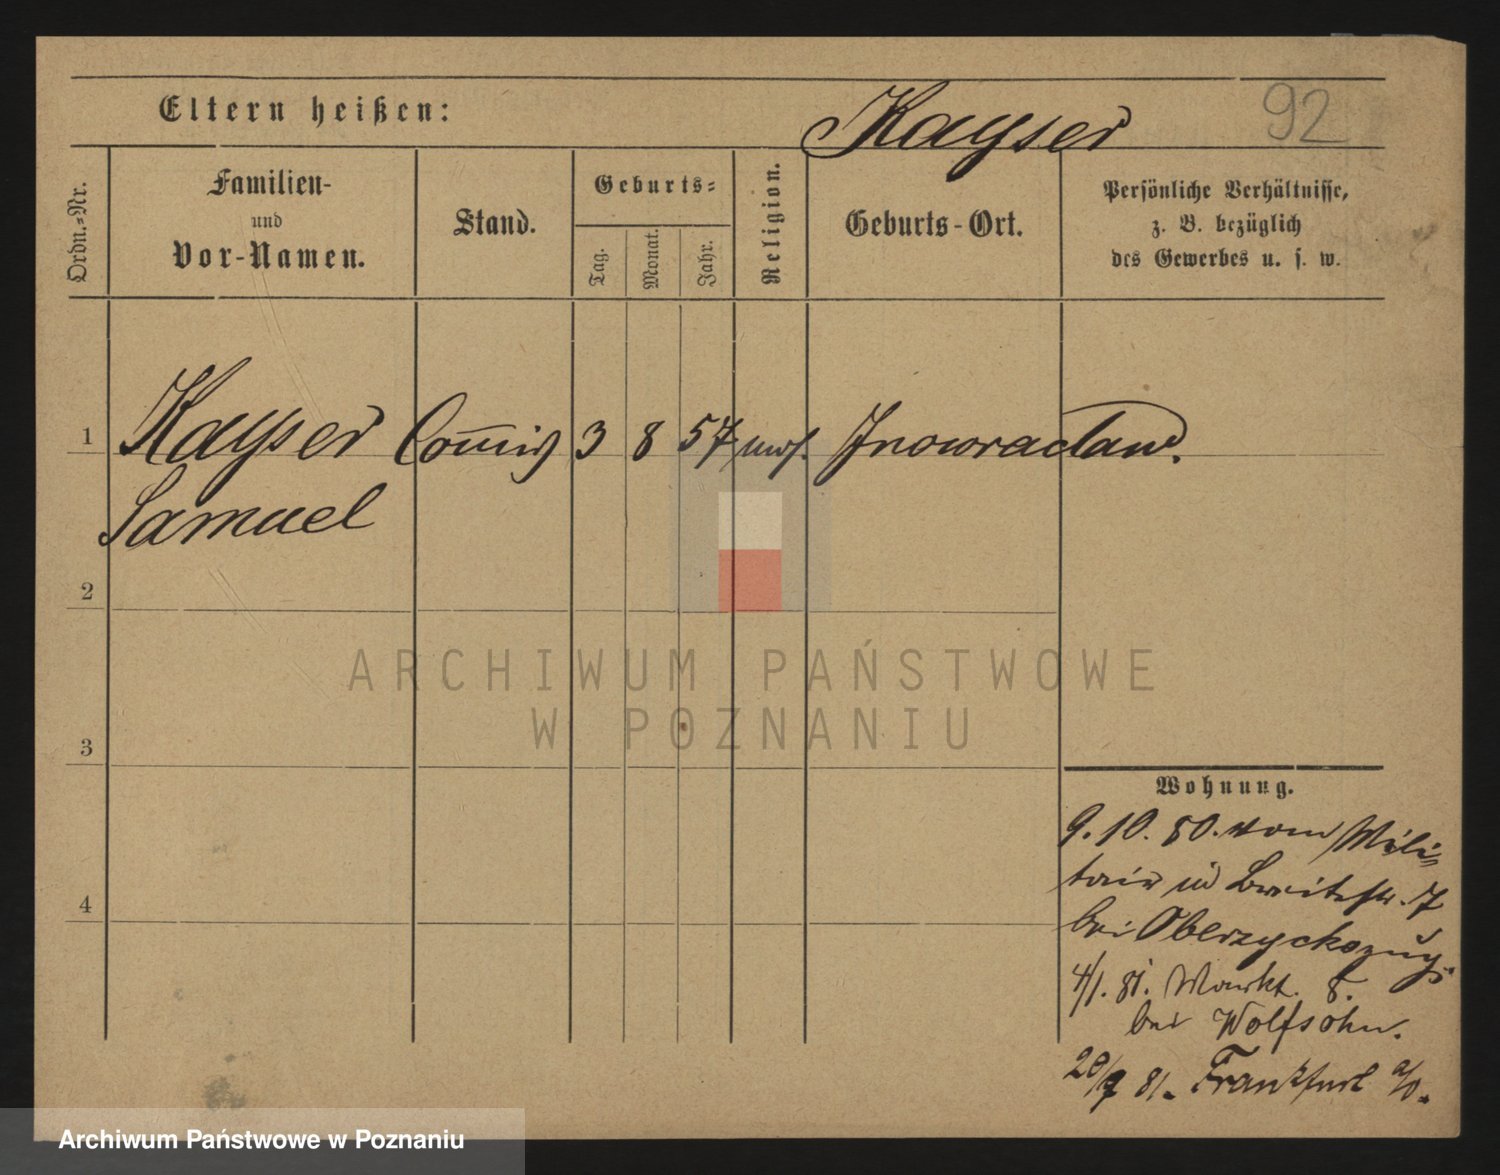 Eltern heißen:
Kayser
92
Ordn.-Nr.
Familien-
und
Vor-Namen.
Stand.
Geburts-
Tag.
Monat.
Jahr.
Religion.
Geburts-Ort.
Persönliche Verhältnisse,
z. B. bezüglich
des Gewerbes u. s. w.
1
Kayser Com̅is 3 8 57 mos. Inowraclaw.
Samuel
2
ARCHIWUM PAŃSTWOWE
W POZNANIU
3
Wohnung.
9. 10. 80. vom Mili-
tair in Breitestr. 7
bei
4
4/1. 81. Markt. 8.
bei Wolfsohn.
81. Frankfurt a/O.
Archiwum Państwowe w Poznaniu